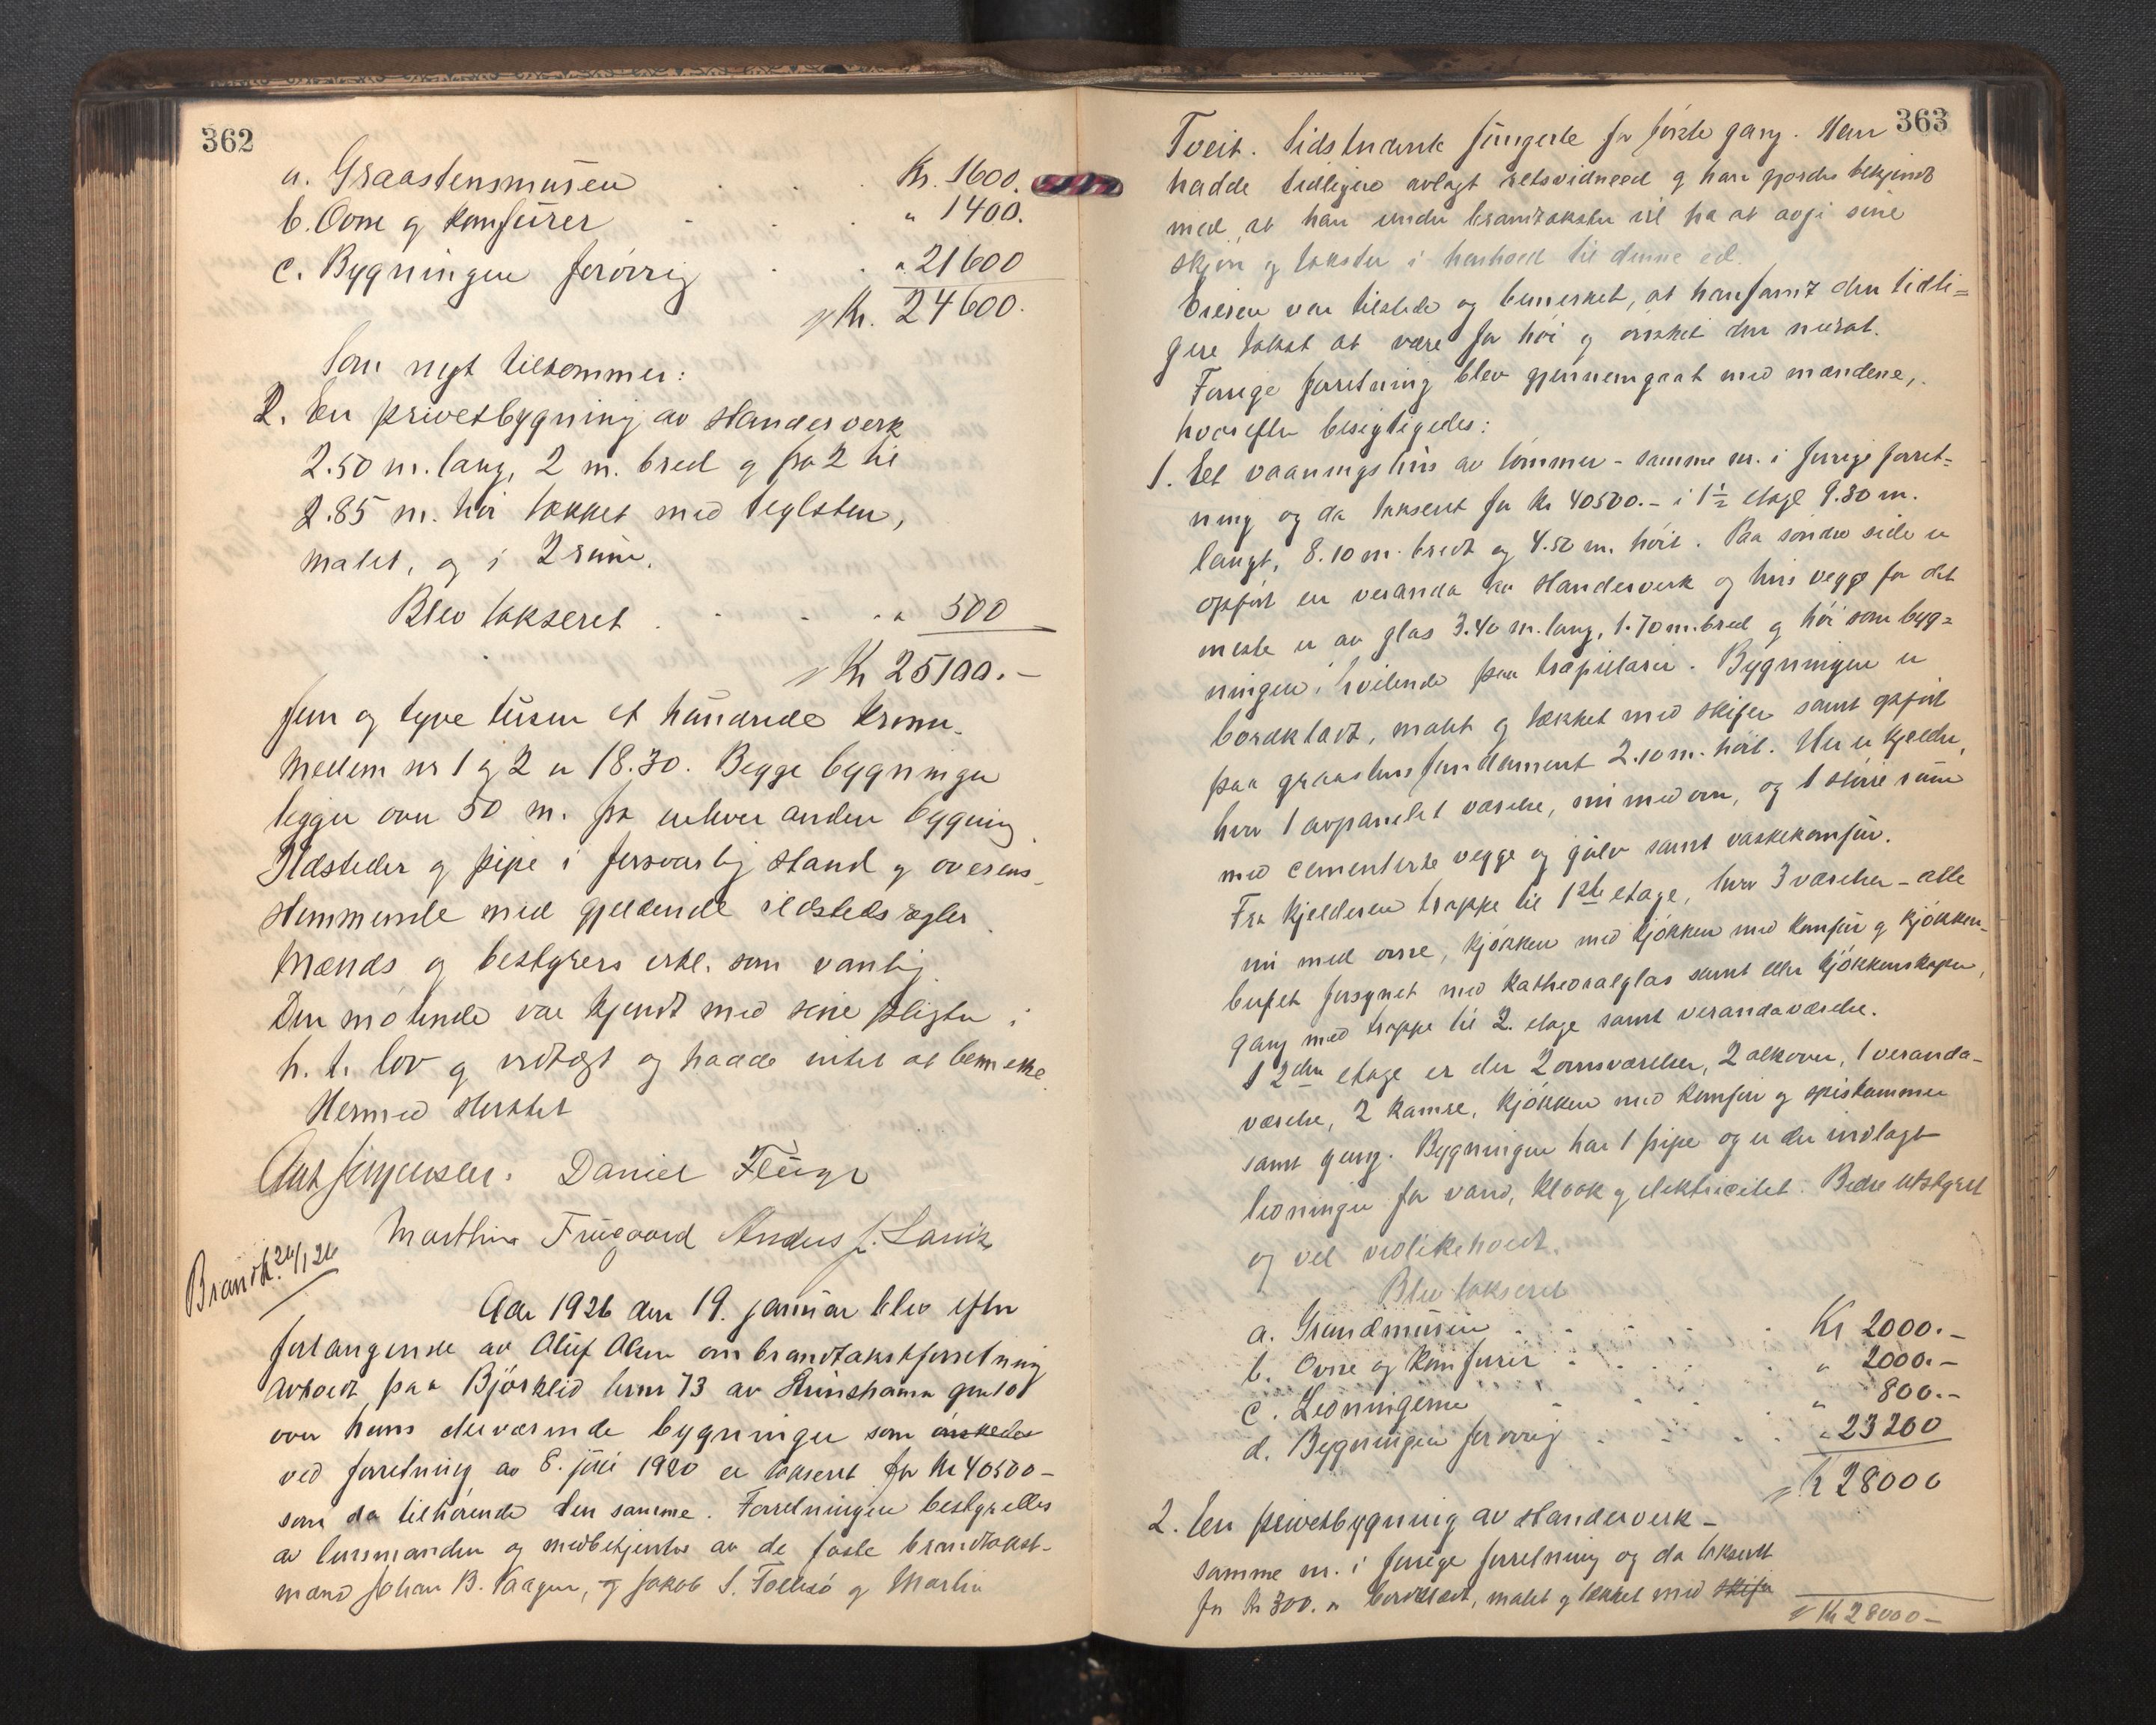 362
a. Graastensmuren . . . Kr. 1600.
b. Ovne og komfurer . . . " 1400.
c. Bygningen forøvrig . . " 21600
Kr. 24600.
Som nyt tilkommer:
2. En privetbygning av standerverk
2.50 m. lang, 2 m. bred og fra 2 til
2.85 m. høi tækket med teglsten,
malet, og i 2 rum.
Blev takseret . . . " 500
Kr 25100.-
fem og tyve tusen et hundrede kroner.
Mellem nr 1 og 2 er 18.30. Begge bygninger
ligger over 50 m. fra enhver anden bygning
Ildsteder og pipe i forsvarlig stand og overens-
stemmende med gjeldende ildstedsregler.
Mænds og bestyrers erkl. som vanlig.
Den møtende var kjendt med sine pligter i
h. t. lov og vedtægt og hadde intet at bemerke.
Hermed sluttet
Ant Jørgensen. Daniel Fluge
Marthin Frugaard Anders J. Lavik
Brandk. 26/1 26
Aar 1926 den 19. januar blev efter
forlangende av Oluf Olsen om brandtakstforretning
avholdt paa Bjørklid brnr 73 av gnr 101
over hans derværende bygninger som ønskedes
ved forretning av 8. juli 1920 er takseret for Kr 40500-
som da tilhørende den samme. Forretningen bestyredes
av lensmanden og medbetjentes av de faste brandtakst-
mænd Johan B. Vaagen, og Jakob S. Follesø og Martin
363
Tveit. Sidstnævnte fungerte for første gang. Han
hadde tidligere avlagt retsvidneed og han gjordes bekjendt
med, at han under brandtakster vil ha at avgi sine
skjøn og takster i henhold til denne ed.
Eieren var tilstede og bemerket, at han fandt den tidli=
gere takst at være for høi og ønsket den nedsat.
Forrige forretning blev gjennemgaat med mændene,
hvorefter besigtigedes:
1. Et vaaningshus av tømmer - samme nr. i forrige forret-
ning og da takseret for Kr 40500.- i 1 1/2 etage 9.80 m.
langt, 8.10 m. bredt og 4.50 m. høit. Paa søndre side er
opført en veranda av standerverk og hvis vegge for det
meste er av glas 3.40 m. lang, 1.70 m. bred og høi som byg=
ningen, hvilende paa træpillarer. Bygningen er
bordklædt, malet og tækket med skifer samt opført
paa graastensfundament 2.10 m. høit. Her er kjelder,
hvor 1 avpanelet værelse, nu med ovn, og 1 større rum
med cementerte vegge og gulv samt vaskekomfur.
Fra kjelderen trappe til 1ste etage, hvor 3 værelser - alle
nu med ovne, kjøkken med kjøkken med komfur og kjøkken-
bufet forsynet med kathedralglas samt eller kjøkkenskaper,
gang med trappe til 2. etage samt verandaværelse.
I 2den etage er der 2 ovnsværelser, 2 alkover, 1 veranda-
værelse, 2 kamre, kjøkken med komfur og spiskammer
samt gang. Bygningen har 1 pipe og er der indlagt
ledninger for vand, kloak og elektricitet. Bedre utstyret
og vel vedlikeholdt.
Blev takseret
a. Grundmuren . . . . Kr 2000.-
b. Ovne og komfurer . . . . " 2000.-
c. Ledningerne . . . " 800.-
d. Bygningen forøvrig . . . . " 23200
Kr 28000
2. En privetbygning av standerverk -
samme nr. i forrige forretning og da takseret
for Kr 300. er bordklædt, malet og tækket med skifer
Kr 28000-